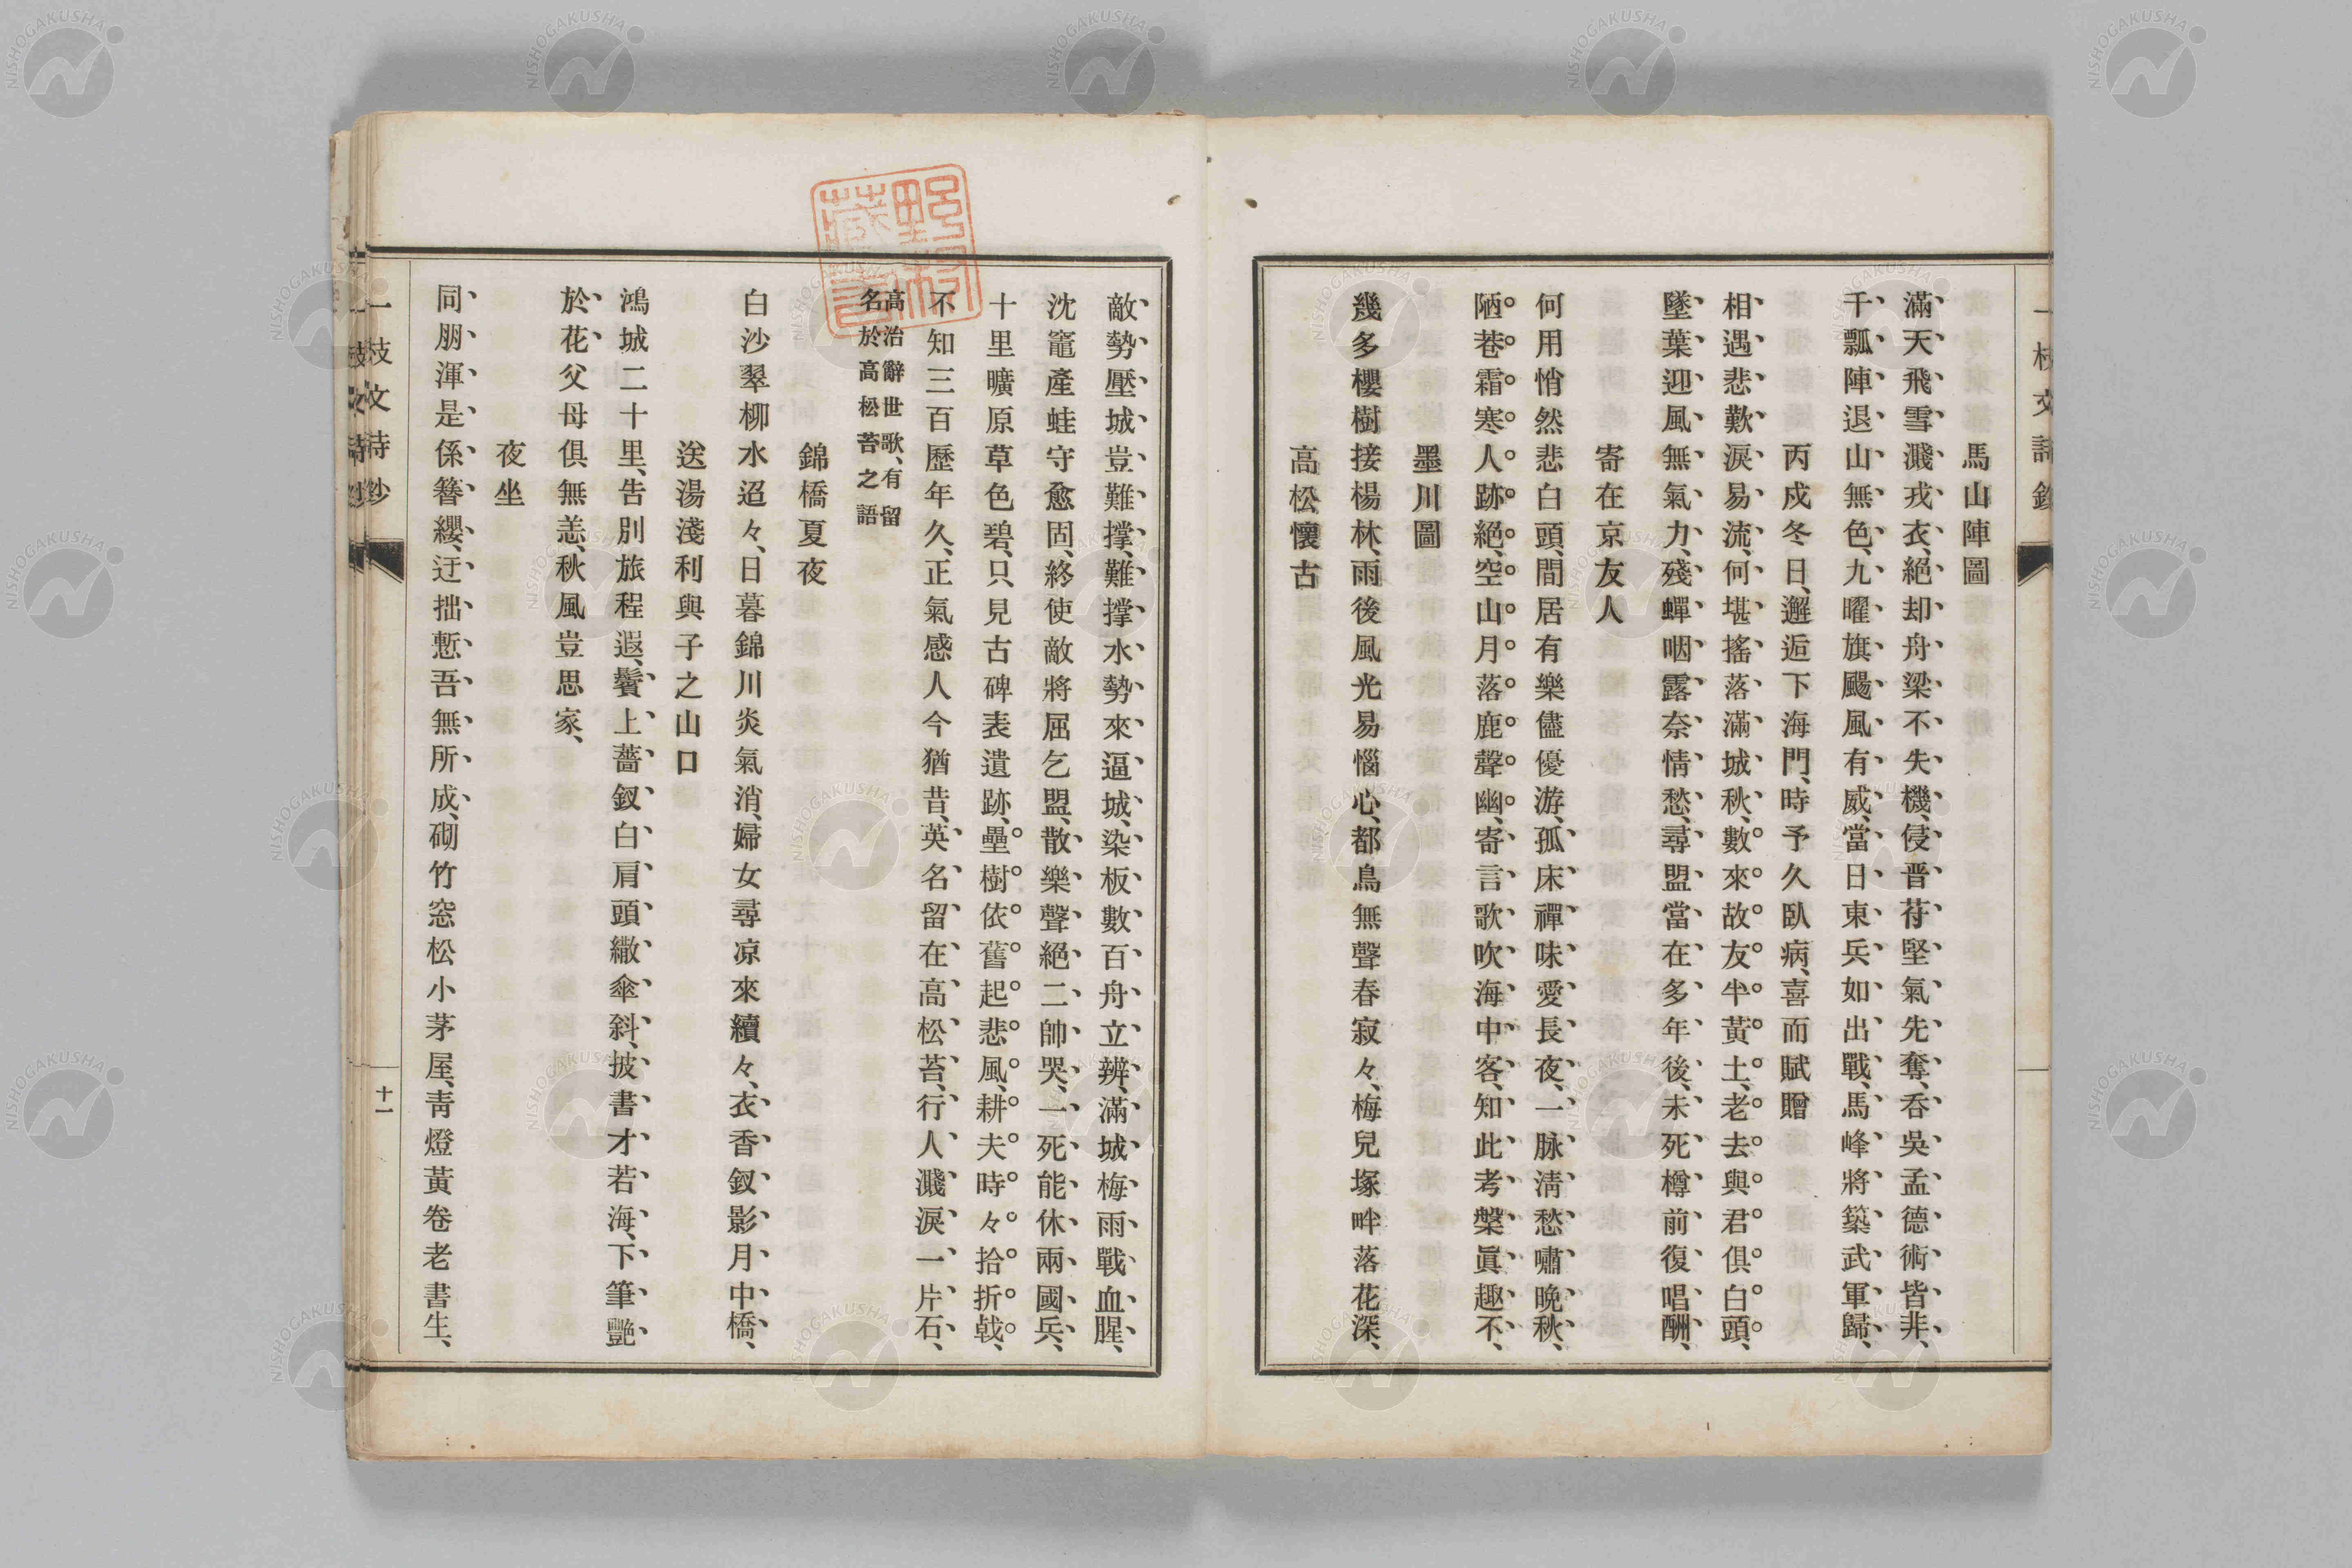 馬山陣圖
滿天飛雪濺戎衣、絕却舟梁不失機、侵晋苻堅氣先奪、吞吳孟德術皆非、
千瓢陣退山無色、九曜旗颺風有威、當日東兵如出戰、馬峰將築武軍歸、
丙戍冬日、邂逅下海門、時予久臥病、喜而賦贈
相遇悲歎淚易流、何堪搖落滿城秋、數來故友半黃土、老去與君俱白頭、
墜葉迎風無氣力、殘蟬咽露奈情愁、尋盟當在多年後、未死樽前復唱酬、
寄在京友人
何用悄然悲白頭、間居有樂儘優游、孤床禪味愛長夜、一脉淸愁嘯晚秋、
陋巷霜寒人跡絕、空山月落鹿聲幽、寄言歌吹海中客、知此考槃眞趣不、
墨川圖
幾多櫻樹接楊林、雨後風光易惱心、都鳥無聲春寂々、梅兒塚畔落花深、
高松懷古
敵勢壓城豈難撑、難撑水勢來逼城、染板數百舟立辨、滿城梅雨戰血腥、
沈竈產蛙守愈固、終使敵將屈乞盟、散樂聲絕二帥哭、一死能休兩國兵、
十里曠原草色碧、只見古碑表遺跡、壘樹依舊起悲風、耕夫時々拾折戟、
不知三百歷年久、正氣感人今猶昔、英名留在高松苔、行人濺淚一片石、
高治辭世歌、有留
名於高松苔之語
錦橋夏夜
白沙翠柳水迢々、日暮錦川炎氣消、婦女尋凉來續々、衣香釵影月中橋、
送湯淺利與子之山口
鴻城二十里、告別旅程遐、鬢上薔釵白、肩頭繖傘斜、披書才若海、下筆艷
於花、父母俱無恙、秋風豈思家、
夜坐
同朋渾是係簪纓、迂拙慙吾無所成、砌竹窓松小茅屋、靑燈黃卷老書生、
一枝文詩鈔
十一
野村
藏書
NISHOGAKUSHA